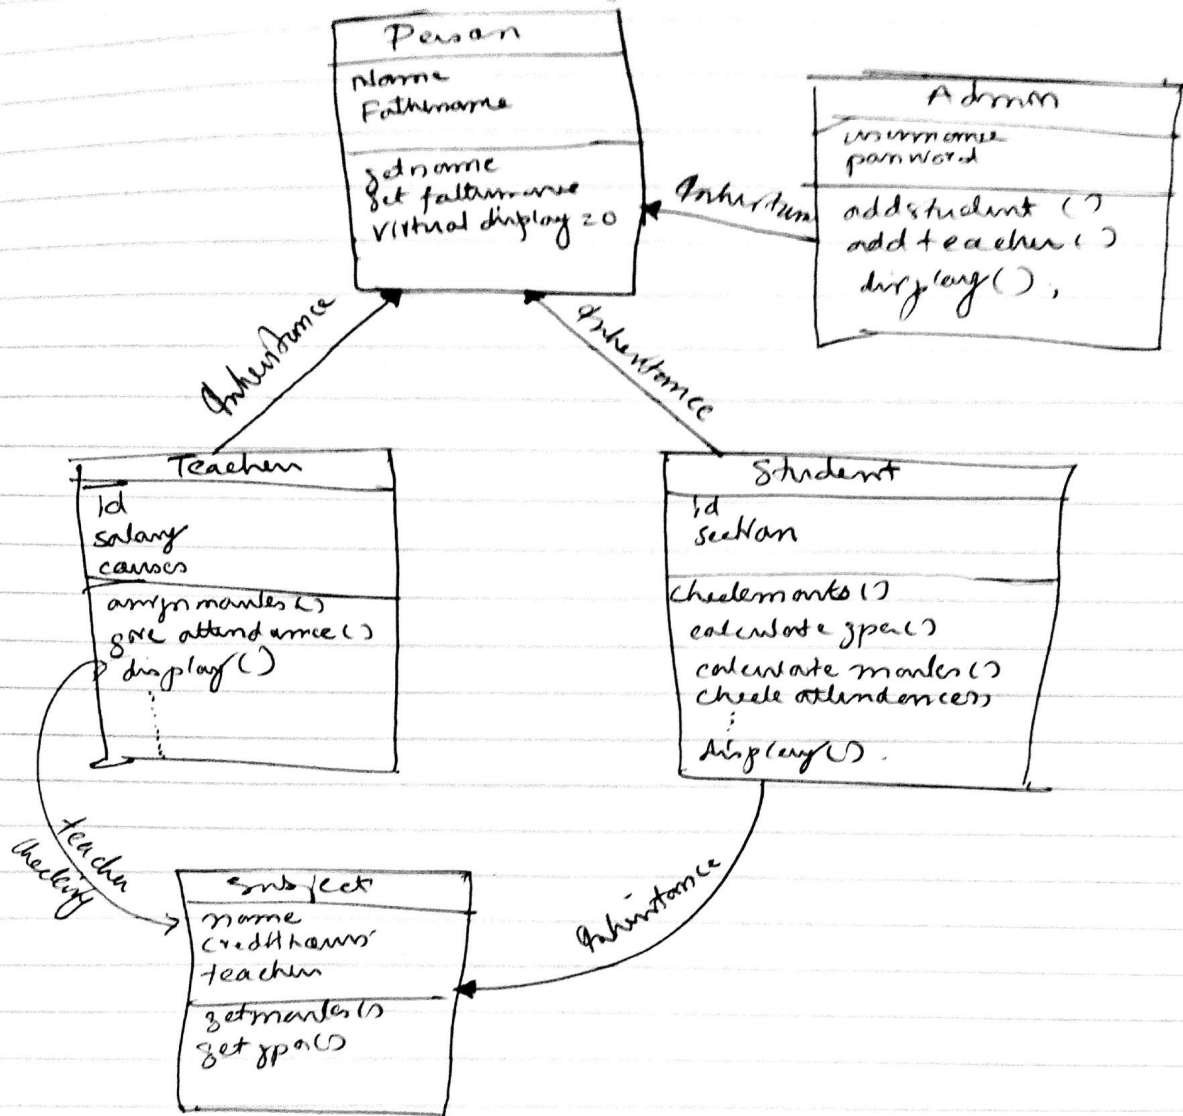 Person
Name
Fathername
getname
get fathername
virtual display = 0
Admin
username
password
addstudent ()
add teacher ()
display(),
Inheritance
Inheritance
Inheritance
Teacher
id
salary
courses
assign marks ()
give attendance ()
display ()
Student
id
section
checkmarks ()
calculate gpa()
calculate marks ()
check attendence()
display().
teacher
checking
Inheritance
Subject
name
credithours
teacher
getmarks()
get gpa()